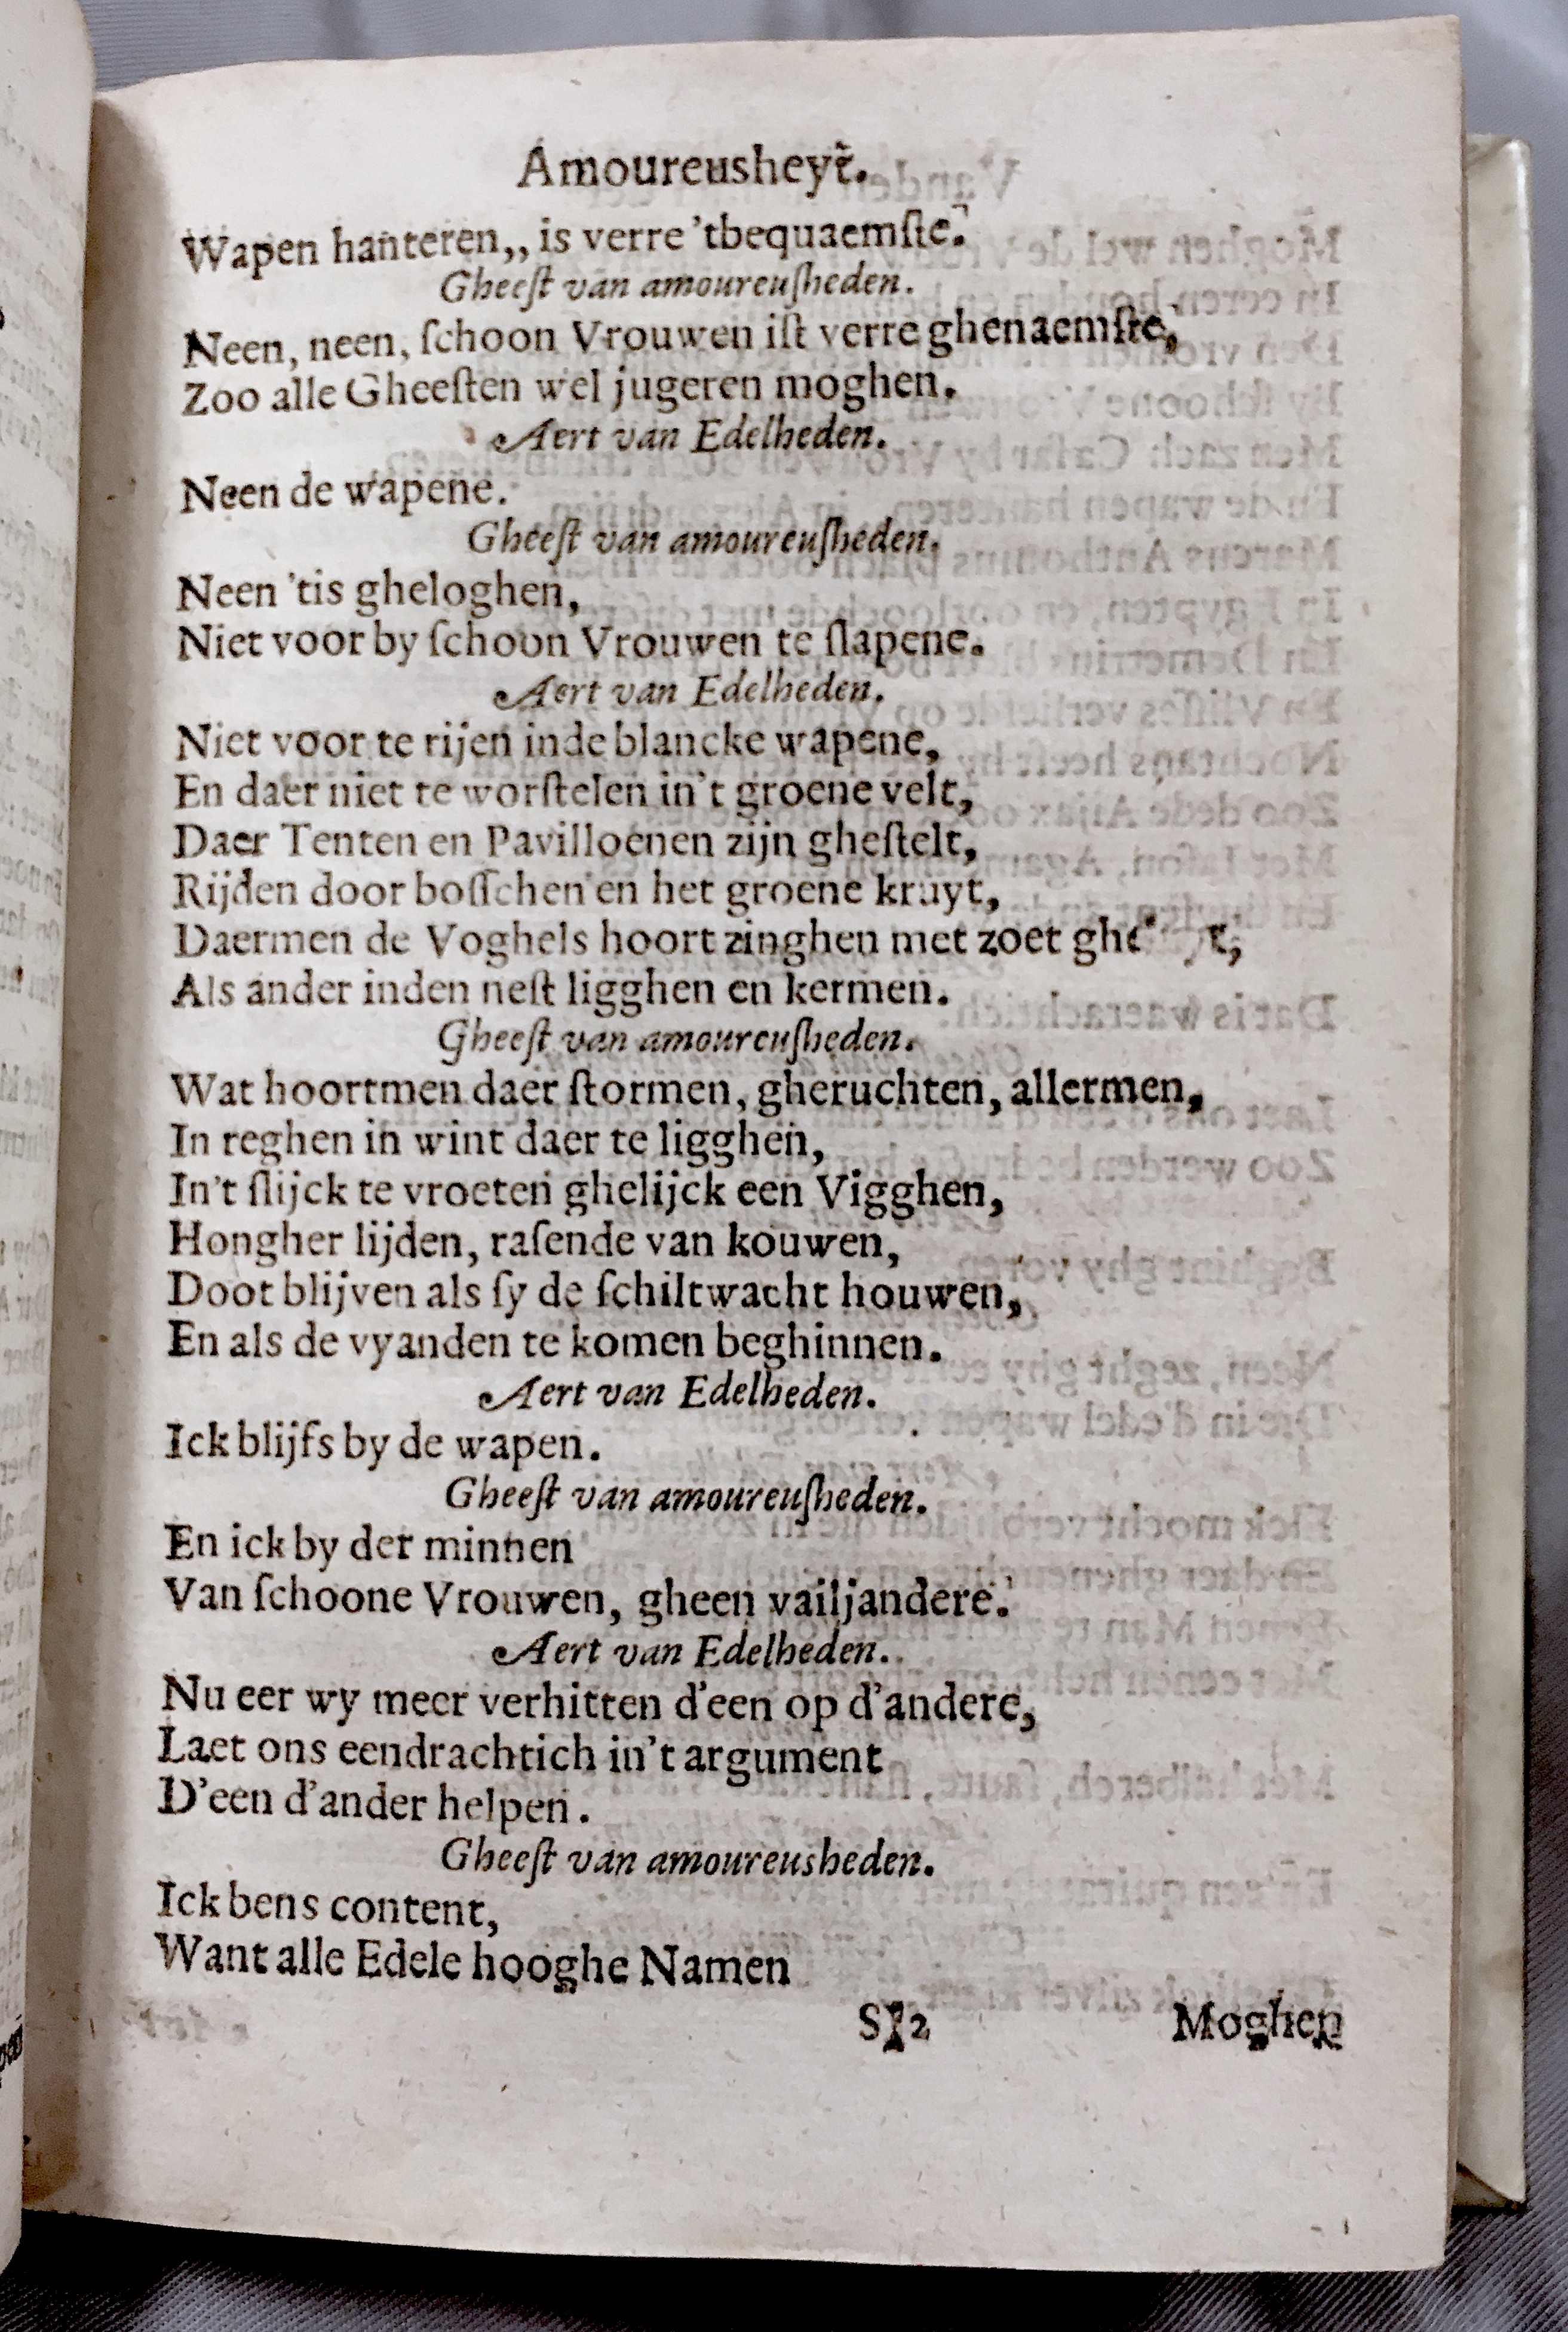 Amoureusheyt.
Wapen hanteren,, is verre 'tbequaemſte.
Gheeſt van amoureuſheden.
Neen, neen, ſchoon Vrouwen iſt verre ghenaemſte,
Zoo alle Gheeſten wel jugeren moghen.
Aert van Edelheden.
Neen de wapene.
Gheeſt van amoureuſheden.
Neen 'tis gheloghen,
Niet voor by ſchoon Vrouwen te ſlapene.
Aert van Edelheden.
Niet voor te rijen inde blancke wapene,
En daer niet te worſtelen in't groene velt,
Daer Tenten en Pavilloenen zijn gheſtelt,
Rijden door boſſchen en het groene kruyt,
Daermen de Voghels hoort zinghen met zoet
Als ander inden neſt ligghen en kermen.
Gheeſt van amoureuſheden.
Wat hoortmen daer ſtormen, gheruchten, allermen,
In reghen in wint daer te ligghen,
In't ſlijck te vroeten ghelijck een Vigghen,
Hongher lijden, raſende van kouwen,
Doot blijven als ſy de ſchiltwacht houwen,
En als de vyanden te komen beghinnen.
Aert van Edelheden.
Ick blijfs by de wapen.
Gheeſt van amoureuſheden.
En ick by der minnen
Van ſchoone Vrouwen, gheen vailjandere.
Aert van Edelheden.
Nu eer wy meer verhitten d'een op d'andere,
Laet ons eendrachtich in't argument
D'een d'ander helpen.
Gheeſt van amoureusheden.
Ick bens content,
Want alle Edele hooghe Namen
Moghen